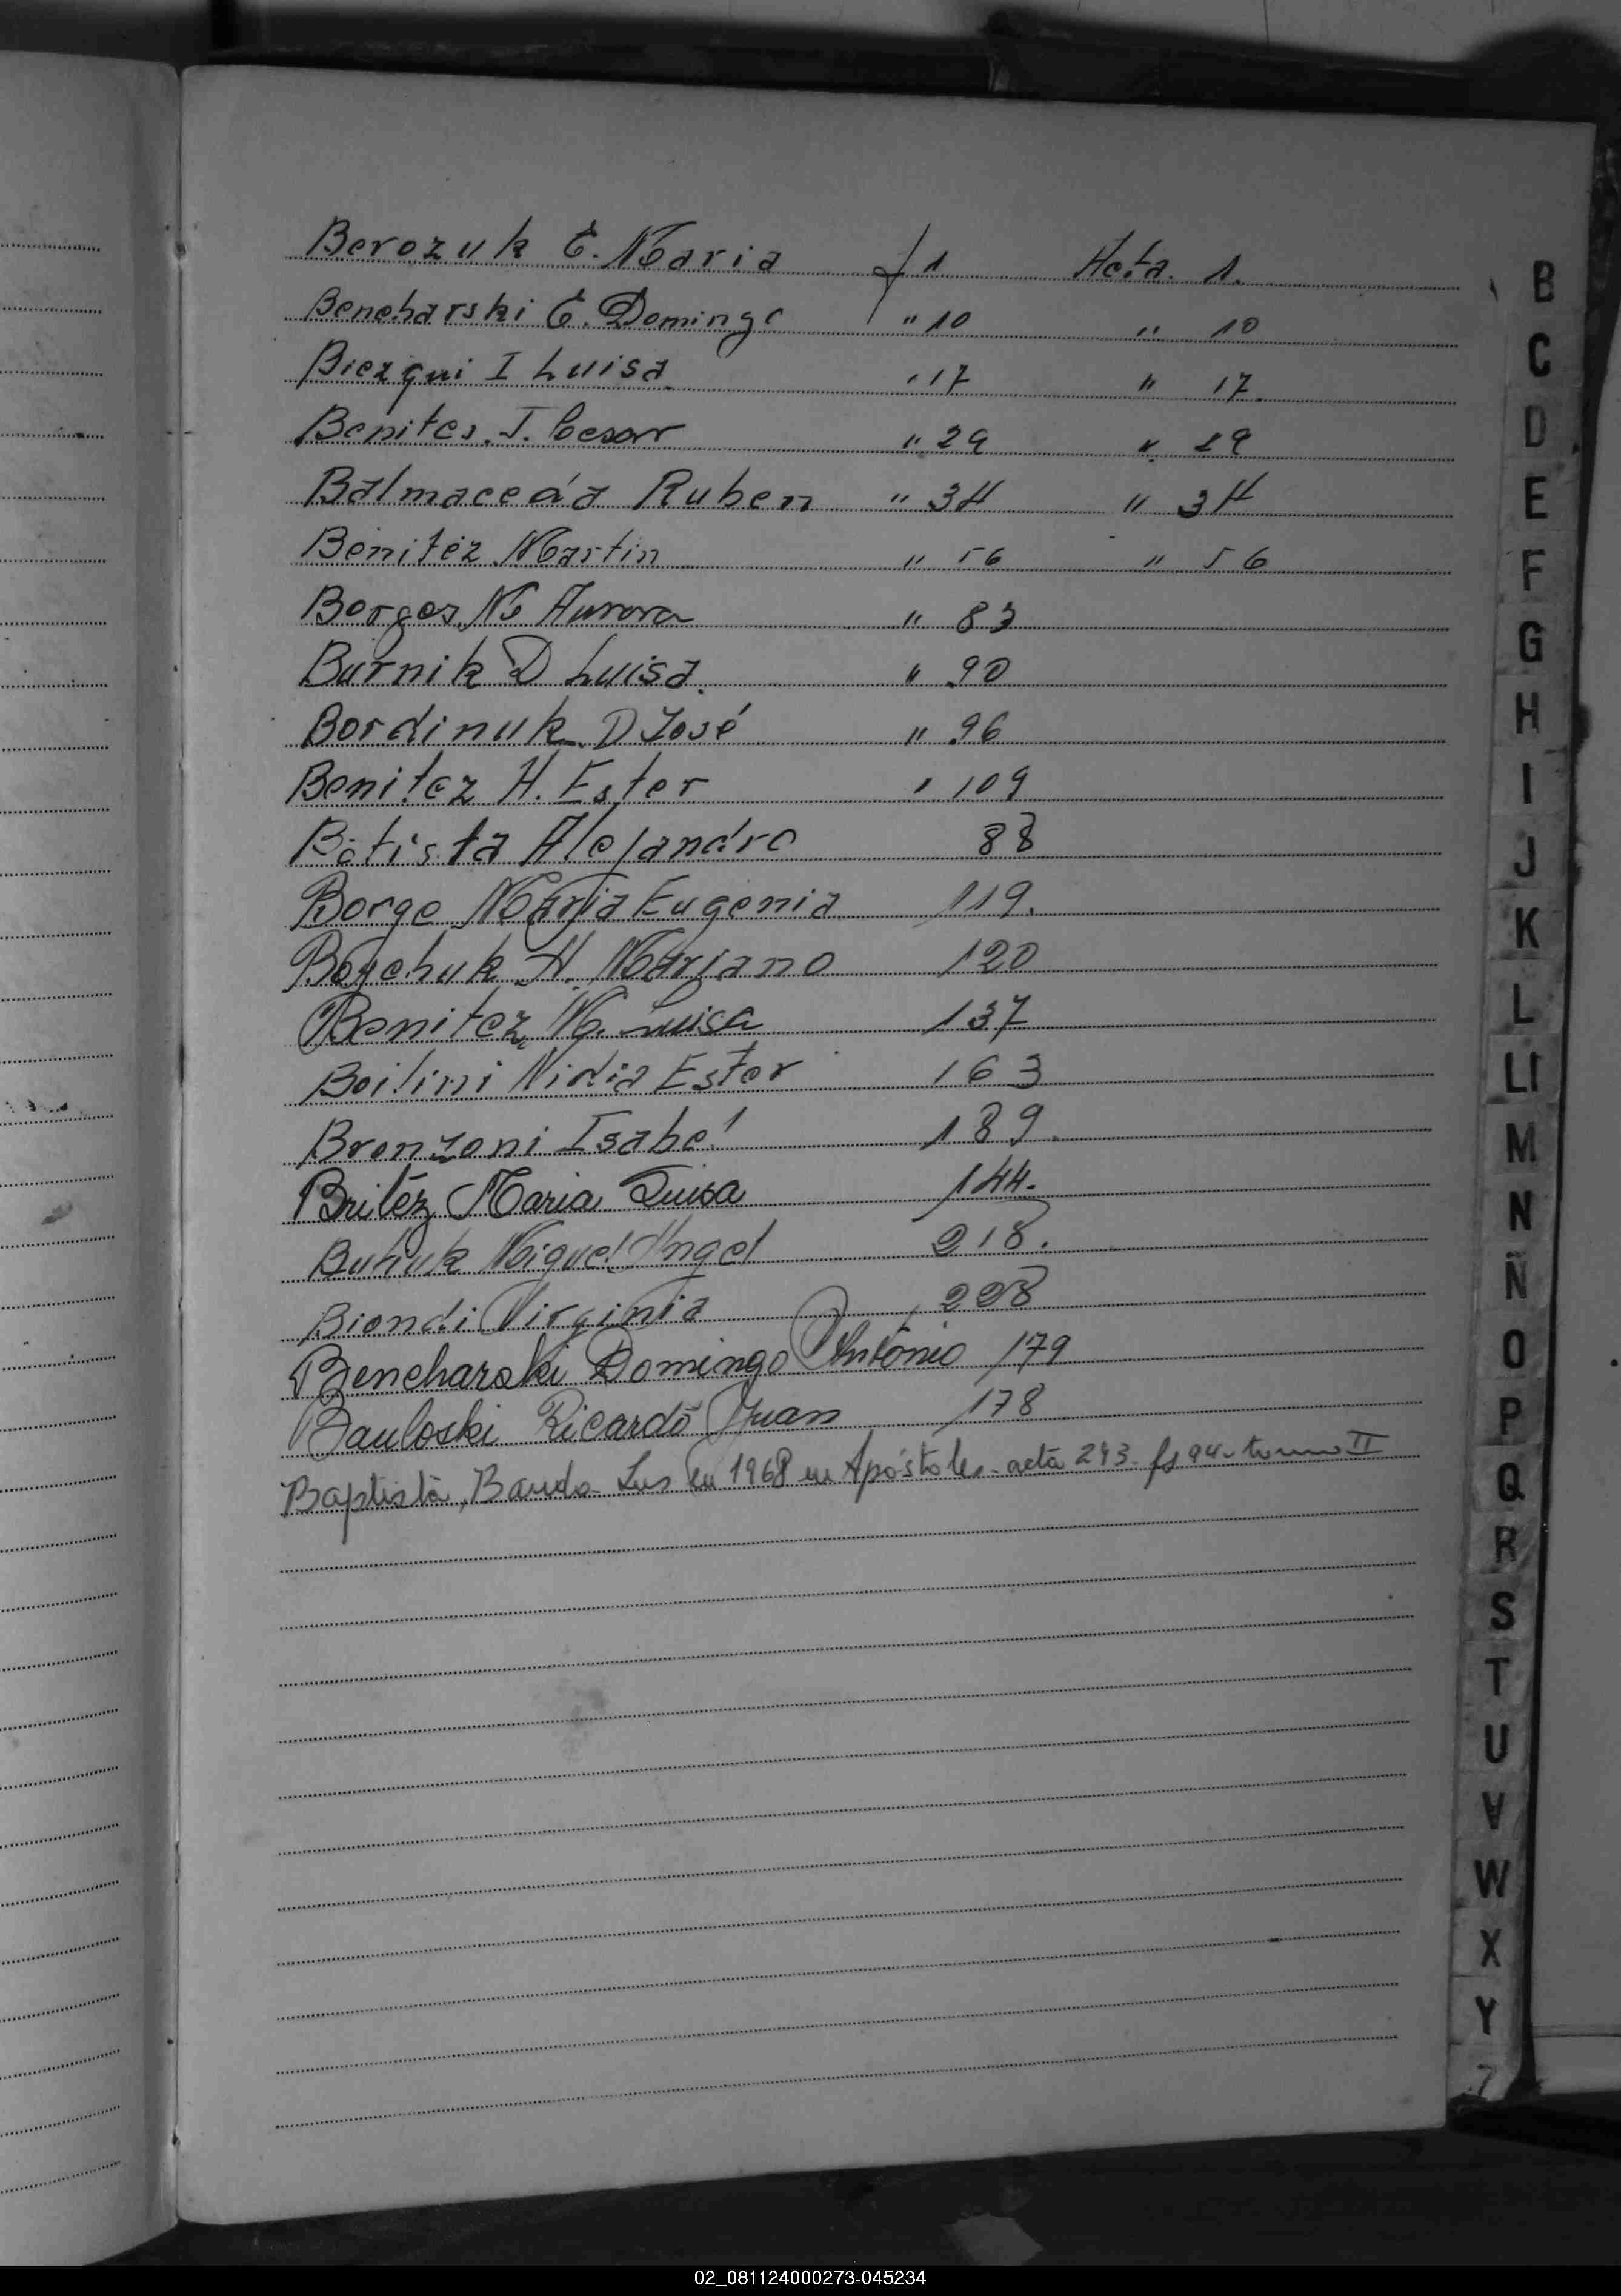 Berozuk E. Maria f 1 Acta. 1.
Beneharski E. Domingo " 10 " 10
Biezqui I Luisa " 17 " 17.
Benites. J. Cesar " 29 " 29
Balmaceda Ruben " 34 " 34
Benitéz Martin " 56 " 56
Borges M Aurora " 83
Burnik D Luisa. " 90
Bordinuk D José " 96
Benitez H. Ester " 109
Batista Alejandro 88
Borge Maria Eugenia 119.
Boychuk H. Mariano 120
Benitez M. Luisa 137
Boilini Nidia Ester 163
Bronzoni Isabel 189.
Britéz Maria Luisa 144.
Buhuk Miguel Angel 218.
Biondi Virginia 228
Beneharski Domingo Antonio 179
Bauloski Ricardo Juan 178
Baptista, Bando Lus en 1968 en Apóstoles - acta 243 - fs 94 - tomo II
B
C
D
E
F
G
H
I
J
K
L
Ll
M
N
Ñ
O
P
Q
R
S
T
U
V
W
X
Y
Z
02_081124000273-045234